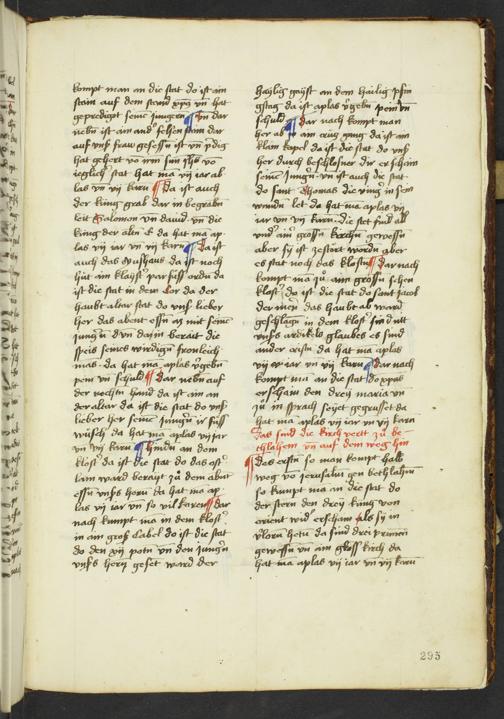 kompt man an die stat do ist ain
stain auf dem stand xp̄s vn̄ hat
gepredigt seinē jungern ¶ Vn̄ dar
nebn̄ ist ain and̄ felsen dar
auf vnß fraw gesessn̄ ist vn̄ p̄dig
hat gehört vō irm sun ihs vō
ieglich̄ stat hat mā vij iar ab
las vn̄ vij karn̄ ¶ Da ist auch
der küng grab dar in begrabn̄
leit Salomon vn̄ dauid vn̄ die
küng der altn̄ e da hat ma ap
las vij iar vn̄ vij karn̄ ¶ Da ist
auch das haus da ist noch
hüt ain klost̄ parfüss ordn̄ da
ist die stat in dem kor da der
haubt altar stat do vnß lieber
her das abent essn̄ as mit seinē
jungn̄ vn̄ darin berait die
speis seines wirdign̄ fronleich
nas da hat mā aplas v̄gebn̄
pein vn̄ schuld ¶ dar nebn̄ auf
der rechtn̄ hand da ist ain an
der altar da ist die stat do vnß
lieber her seinē jungn̄ ir füss
wūsch da hat ma aplas vij iar
vn̄ vij karn̄ ¶ hindn̄ an dem
klost̄ da ist die stat do das ost̄
lam ward berayt zu dem abnt
essn̄ vnßs hern̄ da hat ma ap
las vij iar vn̄ so vil karen ¶ dar
nach kumpt ma in dem klost̄
in ain groß Cabel do ist die stat
do den xij potn̄ vn̄ den jungn̄
vnßs hern̄ geset ward der
haylig gayst an dem hailig pfin
gstag da ist aplas v̄gebn̄ pein vn̄
schuld ¶ dar nach kompt man
her ab in ain crüczgang da ist ain
klain kapel da ist die stat do vnß
her durch beschlosner dir erschain
seinē jungn̄ vn̄ ist auch die stat
do sant Thomas die vinḡ in sein
wundn̄ let da hat ma aplas vij
iar vn̄ vij karn̄ die stet sind all
vnd̄ ain̄ grossn̄ kirchn̄ gewessn̄
aber sy ist zestört wordn̄ aber
es stat noch das klost̄ ¶ dar nach
kompt ma zu ain̄ grossn̄ schen
klost̄ do ist die stat do sant jacob
der mer das haubt ab ward
geschlagn̄ in dem klost̄ sind
vnßs ardikels glaubes es sind
ander cristn̄ da hat ma aplas
vij iar vn̄ vij karn̄ ¶ dar nach
kompt ma an die stat do xpus
erschain den dreij maria vn̄
zu in sprach seijet gegrusset da
hat ma aplas vij iar vn̄ vij karn̄
das sind die kirch vertt zu be
thlahem vn̄ auf dem weg hin
¶ Des erstn̄ so man kompt halb
weg vo jerusalm gen bethlahm̄
so kumpt ma an die stat do
der stern den dreij küng von
orient wid̄ erschain als sij in
vlorn hetn̄ da sind drei prunnen
gewessn̄ vn̄ ain gross kirch da
hat ma aplas vij iar vn̄ vij karn̄
293